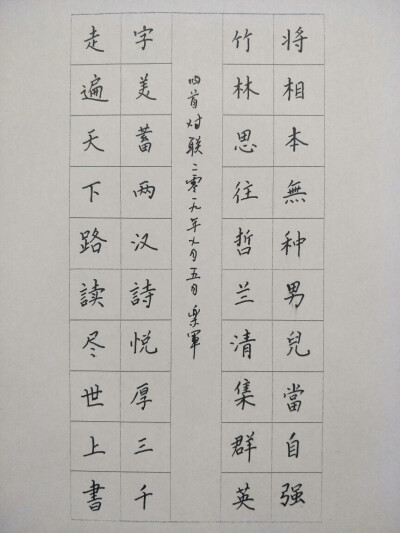 将相本無种男兒當自强
竹林思往哲兰清集群英
四首对联二零一九年月五日 軍
字美蓄两汉詩悦厚三千
走遍天下路讀尽世上書